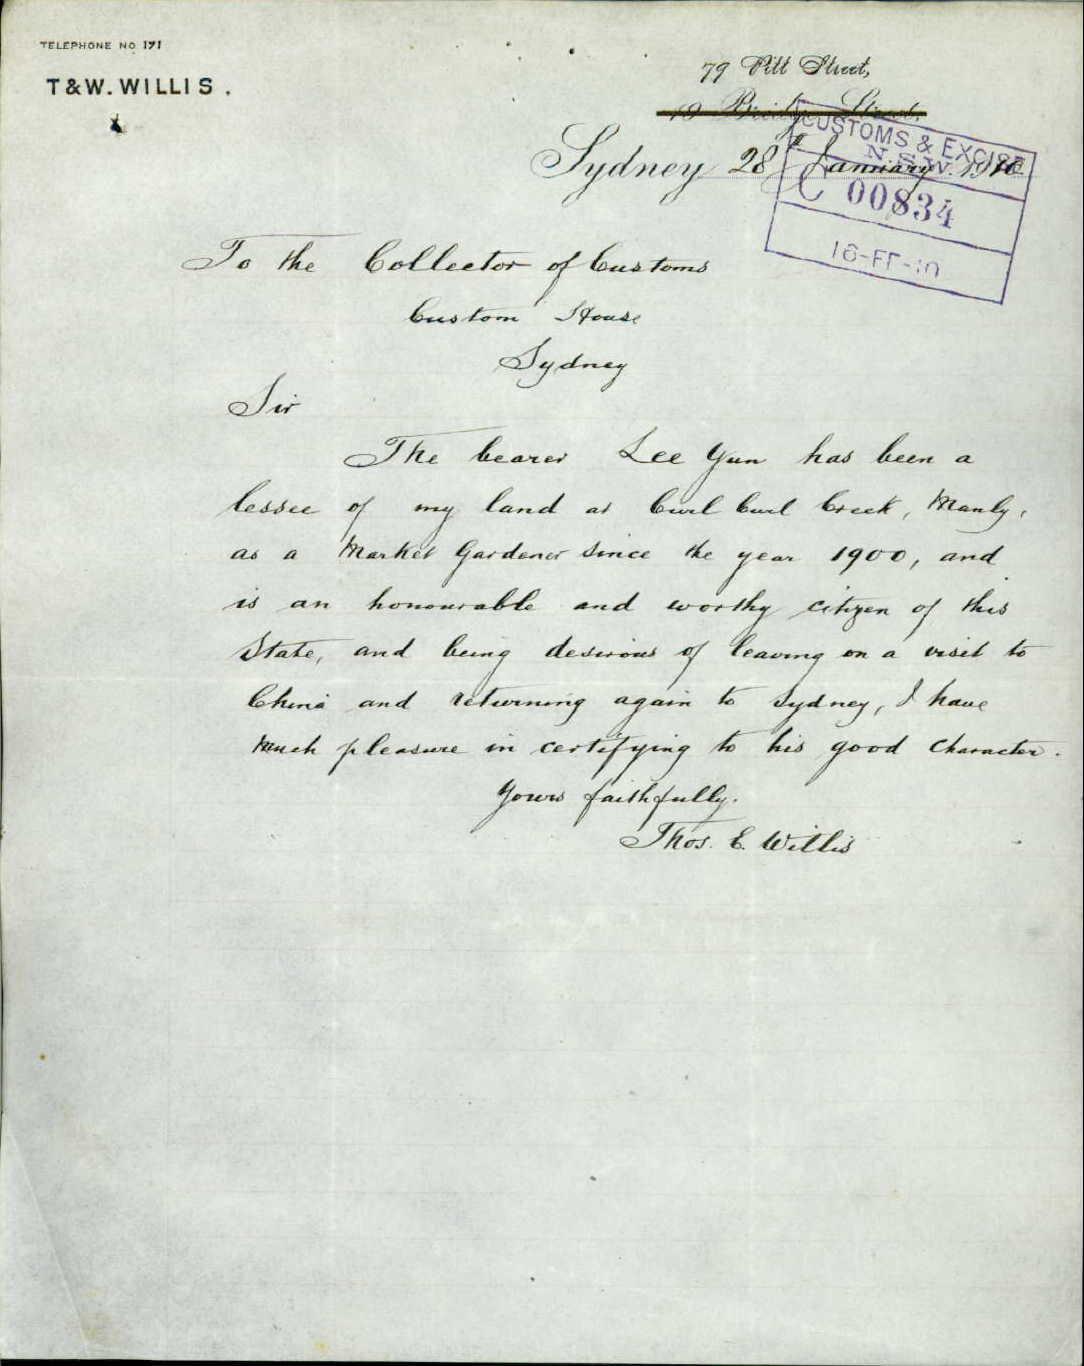 TELEPHONE NO 171
T & W. WILLIS.
79 Pitt Street,
19 Bridge Street,
Sydney 28th January 1910
CUSTOMS & EXCISE
N.S.W.
C 00834
16-FE-10
To the Collector of Customs
Custom House
Sydney
Sir
The bearer Lee Yun has been a
lessee of my land at Curl Curl Creek, Manly,
as a Market Gardener since the year 1900, and
is an honourable and worthy citizen of this
State, and being desirous of leaving on a visit to
China and returning again to Sydney, I have
much pleasure in certifying to his good character.
Yours faithfully.
Thos. E. Willis